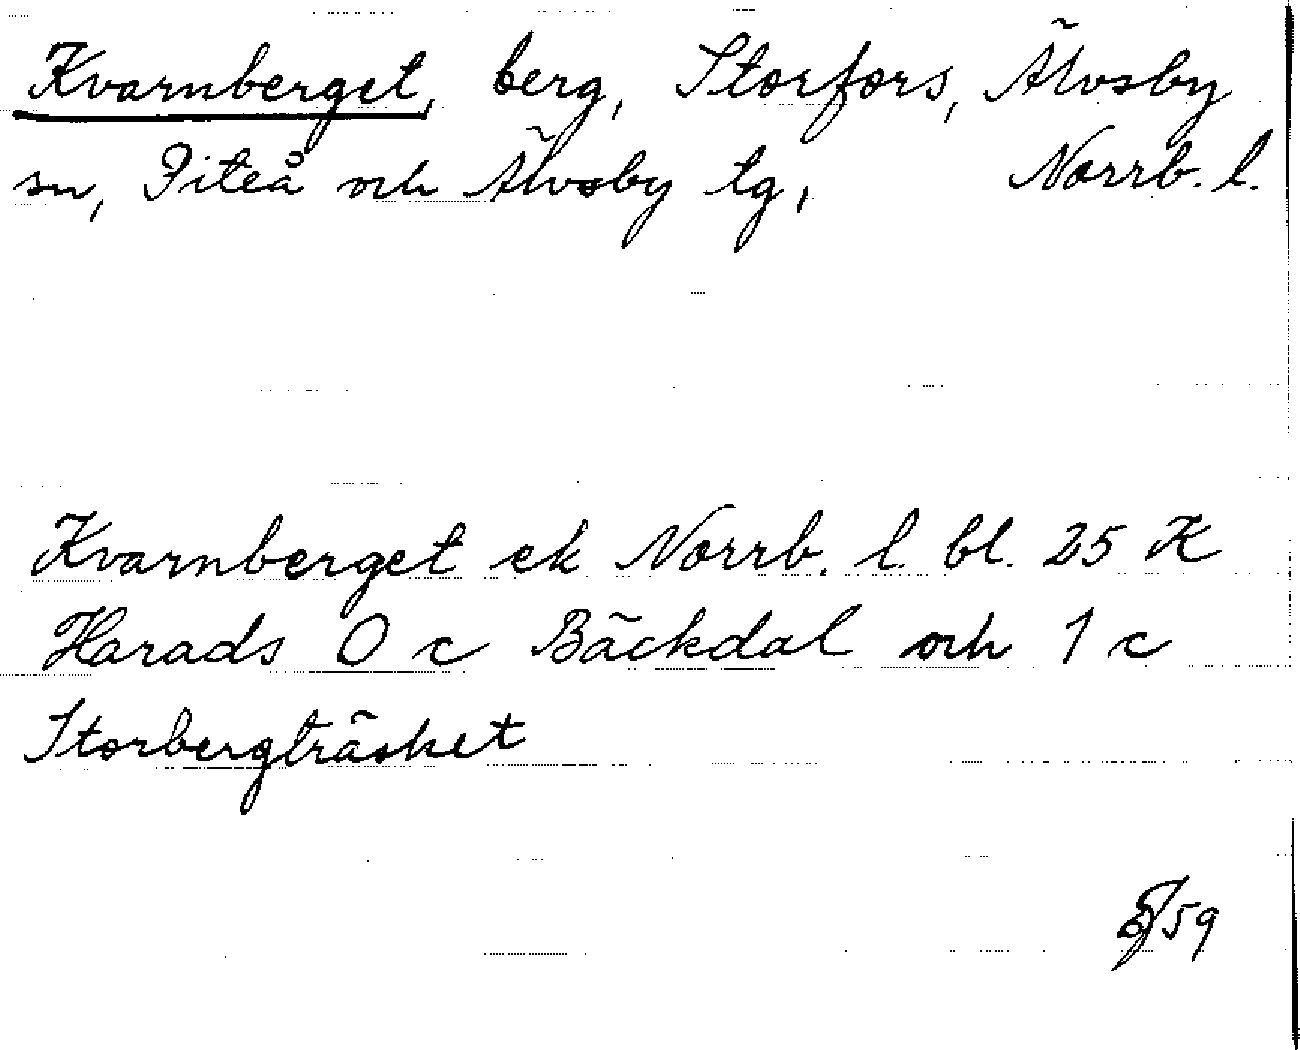 Kvarnberget, berg, Storfors, Älvsby
sn, Piteå och Älvsby tg, Norrb. l.
Kvarnberget ek Norrb. l. bl. 25 K
Harads 0 c Bäckdal och 1 c
Storbergträsket
59